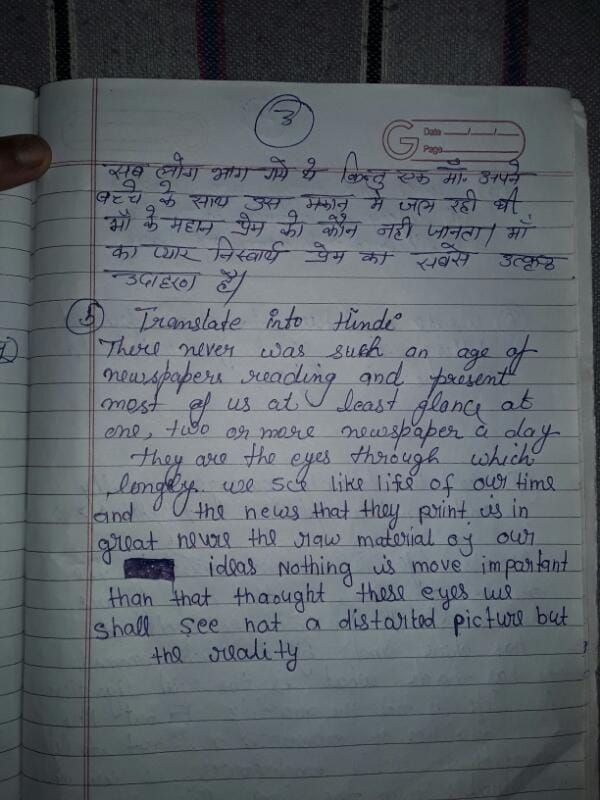 3
G Date ___/___/___
Page
सब लोग भाग गये थे किन्तु एक माँ अपने
बच्चे के साथ उस मकान मे जल रही थी
माँ के महान प्रेम को कौन नही जानता। माँ
का प्यार निस्वार्थ प्रेम का सबसे उत्कृष्ठ
उदाहरण है।
5 Translate into Hinde
There never was such an age of
newspapers reading and present
most of us at least glance at
one, two or more newspaper a day
they are the eyes through which
we see like life of our time
and the news that they print is in
great the raw material of our
ideas Nothing is move important
than that thaought these eyes we
shall see not a distarted picture but
the reality